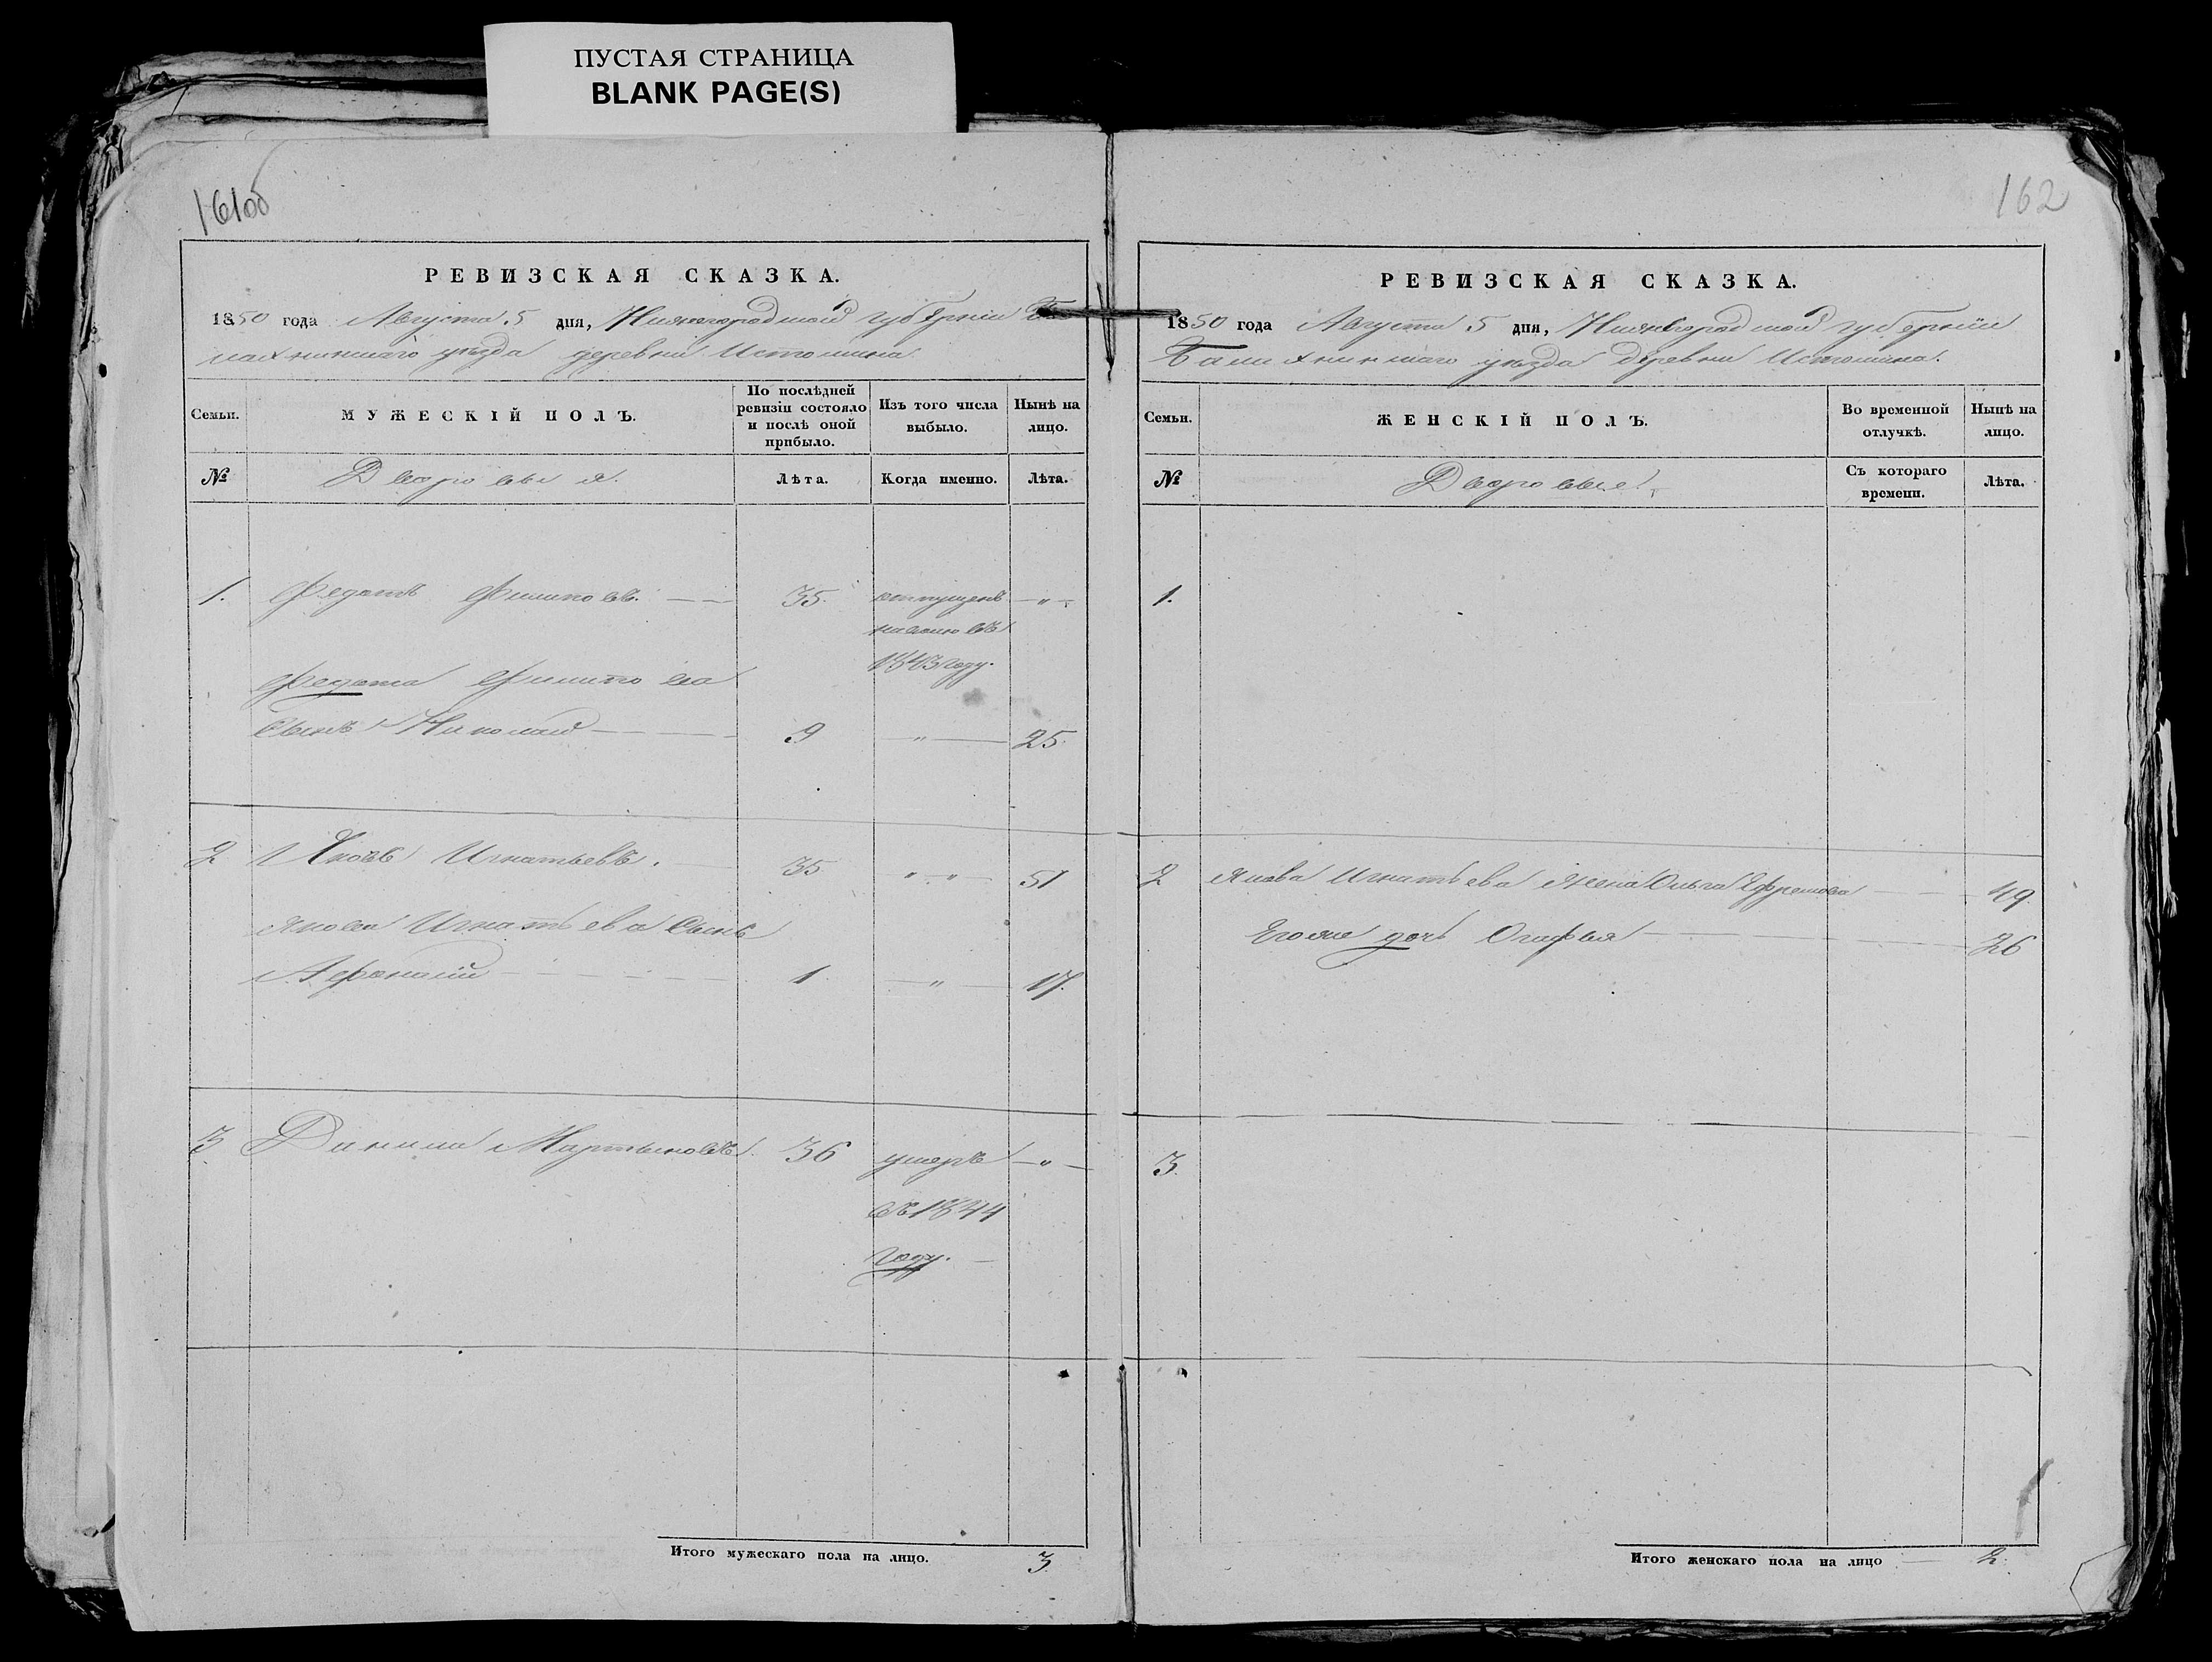 ПУСТАЯ СТРАНИЦА
BLANK PAGE(S)
161об
РЕВИЗСКАЯ СКАЗКА.
1850 года Августа 5 дня, Нижегородской губернии Ба
лахнинскаго уѣзда деревни Истомина
Семьи.
МУЖЕСКІЙ ПОЛЪ.
По послѣдней ревизіи состояло и послѣ оной прибыло.
Изъ того числа выбыло.
Нынѣ на лицо.
№
Дворовыя.
Лѣта.
Когда именно.
Лѣта.
1. Федотъ Филиповъ. 35. отпущенъ "
на волю въ
1843 году.
Федота Филипова
Сынъ Николай 9 " 25.
2 Яковъ Игнатьевъ. 35 " " 51
Якова Игнатьева Сынъ
Афонасій 1 " 17.
3 Данила Мартыновъ. 36 умеръ "
въ 1844
году.
Итого мужескаго пола на лицо. 3.
162
РЕВИЗСКАЯ СКАЗКА.
1850 года Августа 5 дня, Нижегородской губерніи
Балахнинскаго уѣзда деревни Истомина.
Семьи.
ЖЕНСКІЙ ПОЛЪ.
Во временной отлучкѣ.
Нынѣ на лицо.
№
Дворовые.
Съ котораго времени.
Лѣта.
1.
2 Якова Игнатьева жена Ольга Ефремова 49.
Егоже дочь Огафья 26
3.
Итого женскаго пола на лицо 2.